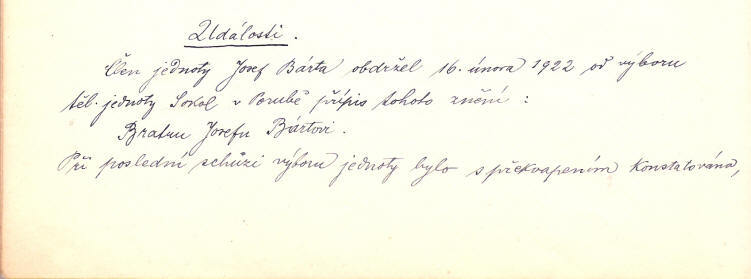 Události.
Člen jednoty Josef Bárta obdržel 16. února 1922 od výboru
těl. jednoty Sokol v Porubě přípis tohoto znění:
Bratru Josefu Bártovi.
Při poslední schůzi výboru jednoty bylo s překvapením konstatována,